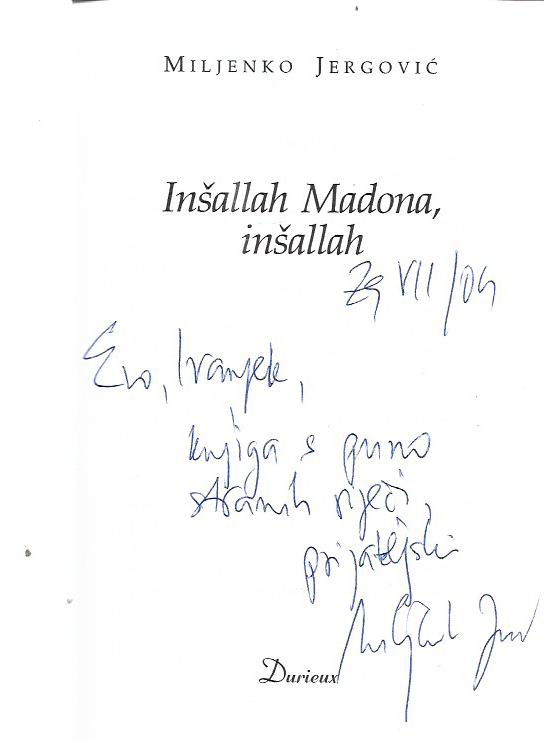 MILJENKO JERGOVIĆ
Inšallah Madona,
inšallah
Zg VII/04
Evo, Ivanjek,
knjiga s puno
stranih riječi,
prijateljski
Durieux